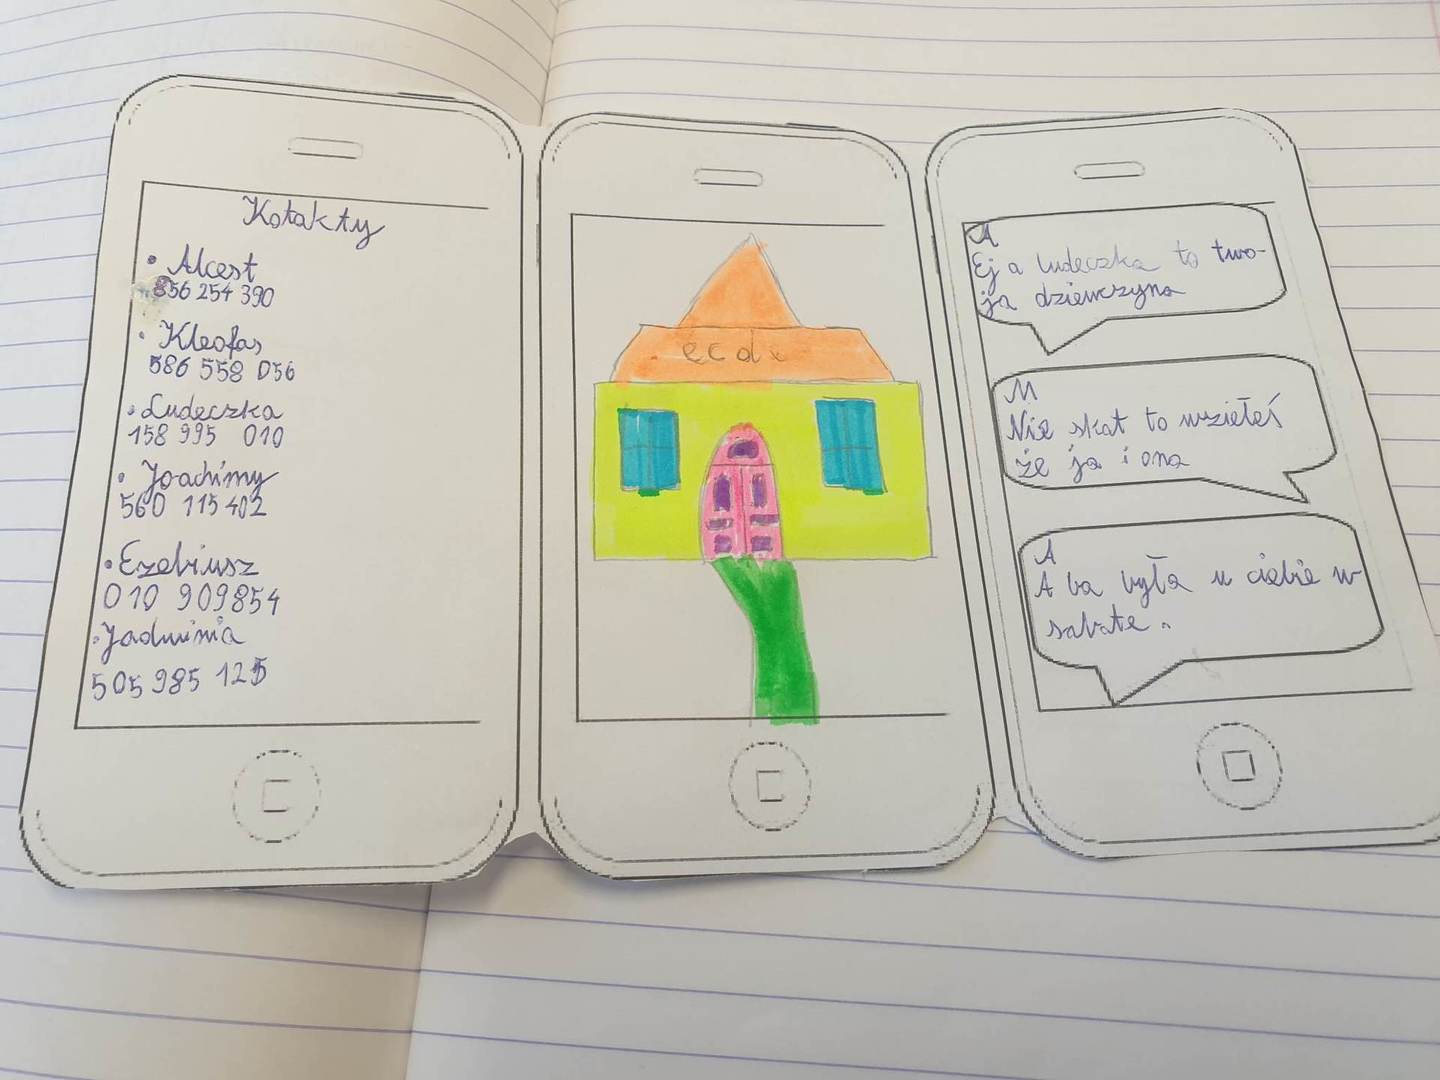 Kotakty
• Alcest
856 254 390
• Kleofas
586 558 056
• Ludeczka
158 995 010
• Joachimy
560 115 402
• Ezebiusz
010 909854
• Jadwinia
505 985 125
A
Ej a ludeczka to two-
ja dziewczyna
M
Nie skat to wziełeś
że ja i ona
A
A ba była u ciebie w
sabate.